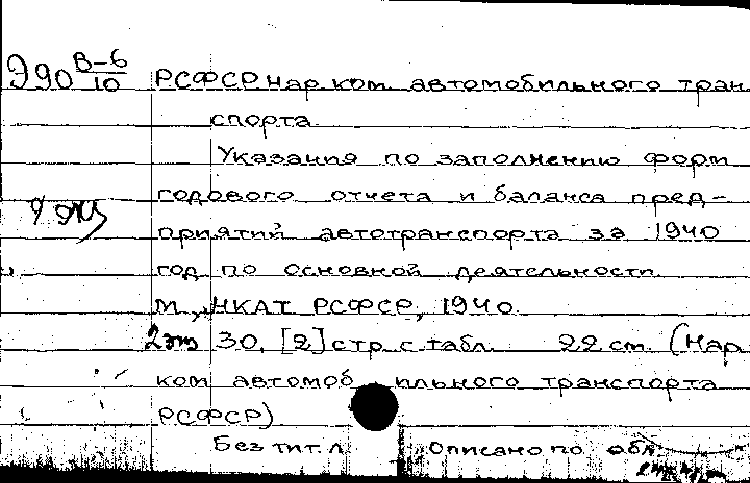 Э90 В-6/10 РСФСР. Нар. ком. автомобильного тран
спорта.
Указания по заполнению форм
годового отчета и баланса пред-
приятий автотранспорта за 1940
год по основной деятельности.
М., НКАТ РСФСР, 1940.
2 экз 30, [2] стр. с табл. 22 см. (Нар.
ком автомобильного транспорта
РСФСР)
Без тит. л. Описано по обл.